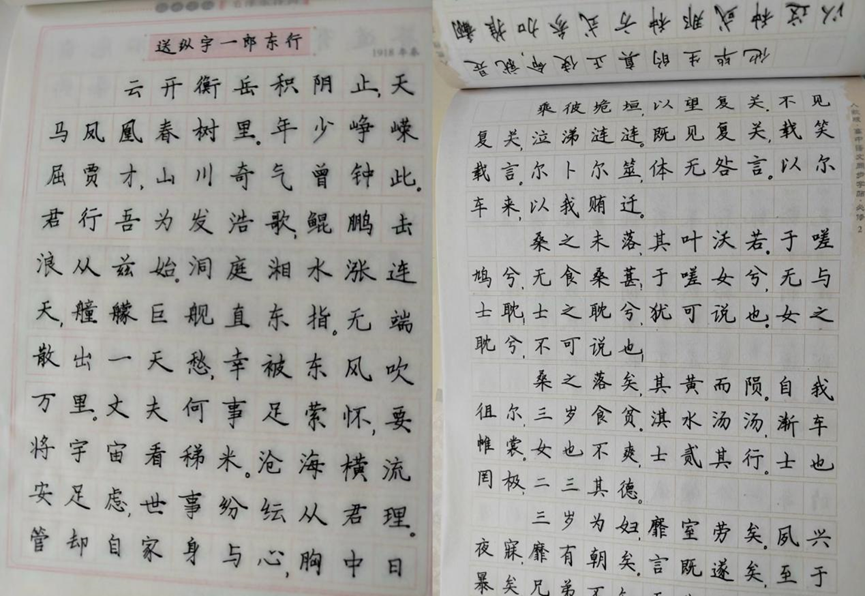 送纵宇一郎东行
云开衡岳积阴止,天
马凤凰春树里。年少峥嵘
屈贾才,山川奇气曾钟此。
君行吾为发浩歌,鲲鹏击
浪从兹始。洞庭湘水涨连
天,艟艨巨舰直东指。无端
散出一天愁,幸被东风吹
万里。丈夫何事足萦怀,要
将宇宙看稊米。沧海横流
安足虑,世事纷纭从君理。
管却自家身与心,胸中日
他毕生的真正使命,就是
以这种或那种方式参加推翻
乘彼垝垣,以望复关,不见
复关,泣涕涟涟。既见复关,载笑
载言。尔卜尔筮,体无咎言。以尔
车来,以我贿迁。
桑之未落,其叶沃若。于嗟
鸠兮,无食桑葚,于嗟女兮,无与
士耽,士之耽兮,犹可说也。女之
耽兮,不可说也,
桑之落矣,其黄而陨。自我
徂尔,三岁食贫。淇水汤汤,渐车
帷裳。女也不爽,士贰其行。士也
罔极,二三其德。
三岁为妇,靡室劳矣。夙兴
夜寐,靡有朝矣。言既遂矣,至于
暴矣。兄弟不